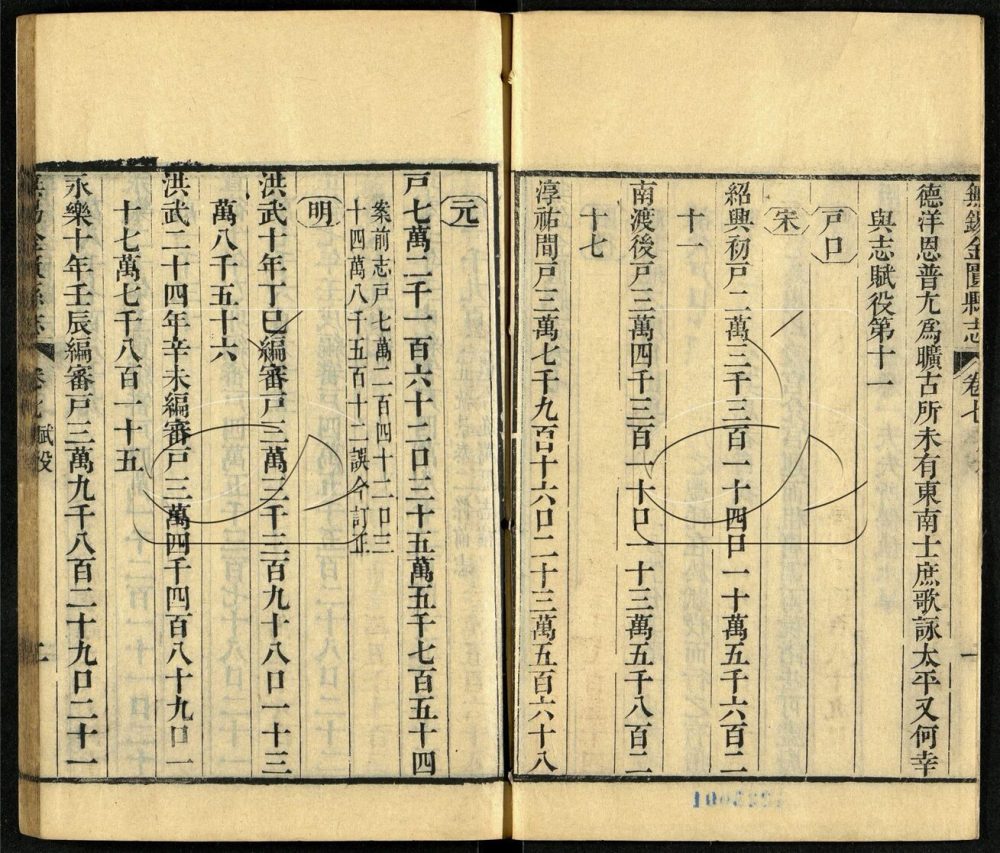 無錫金匱縣志
卷七
一
德洋恩普尤爲曠古所未有東南士庶歌詠太平又何幸
與志賦役第十一
戸口
宋
紹興初戸二萬三千三百一十四口一十萬五千六百二
十一
南渡後戸三萬四千三百一十口一十三萬五千八百二
十七
淳祐間戸三萬七千九百十六口二十三萬五百六十八
元
戸七萬二千一百六十二口三十五萬五千七百五十四
案前志戸七萬二百四十二口三
十四萬八千五百十二誤今訂正
明
洪武十年丁巳編審戸三萬三千三百九十八口一十三
萬八千五十六
洪武二十四年辛未編審戸三萬四千四百八十九口一
十七萬七千八百一十五
永樂十年壬辰編審戸三萬九千八百二十九口二十一
卷七 賦役
二